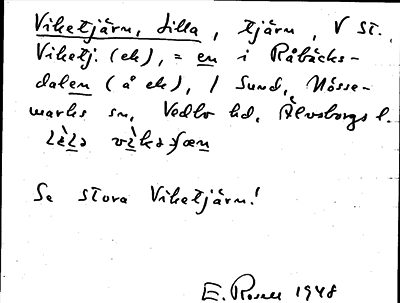 Viketjärn, Lilla, tjärn, V St.
Viketj. (ek), = en i Råbäcks-
dalen (å ek), / Sund, Nösse-
marks sn, Vedbo hd, Älvsborgs l.
Se stora Viketjärn!
E. Rosell 1948